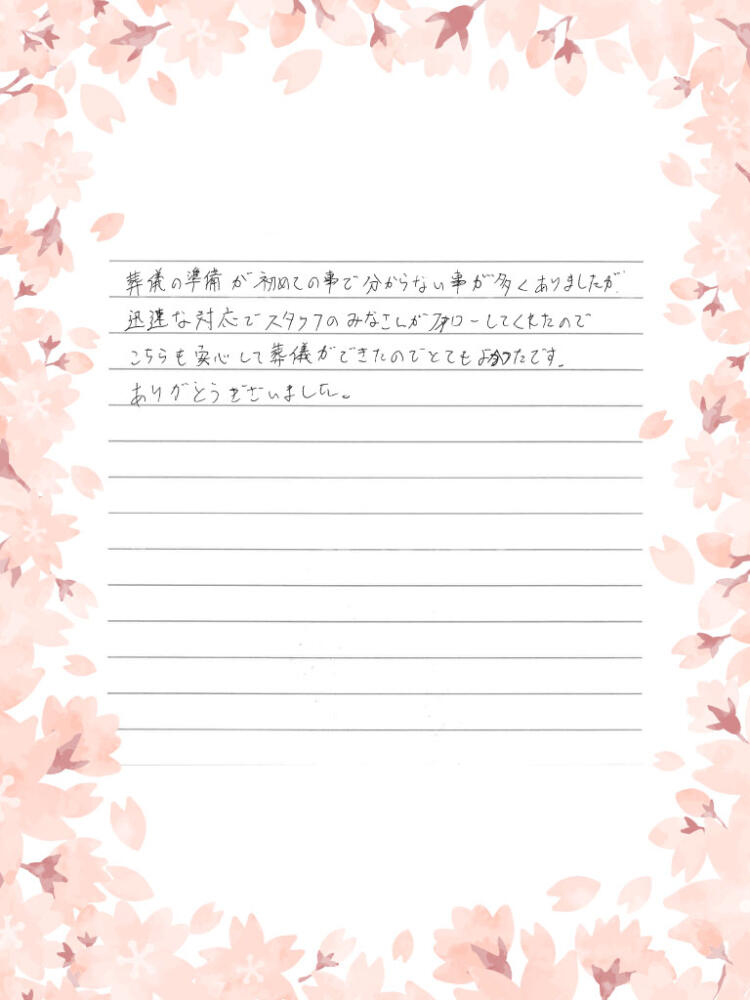 葬儀の準備が初めての事で分からない事が多くありましたが
迅速な対応でスタッフのみなさんがフォローしてくれたので
こちらも安心して葬儀ができたのでとてもよかったです。
ありがとうございました。